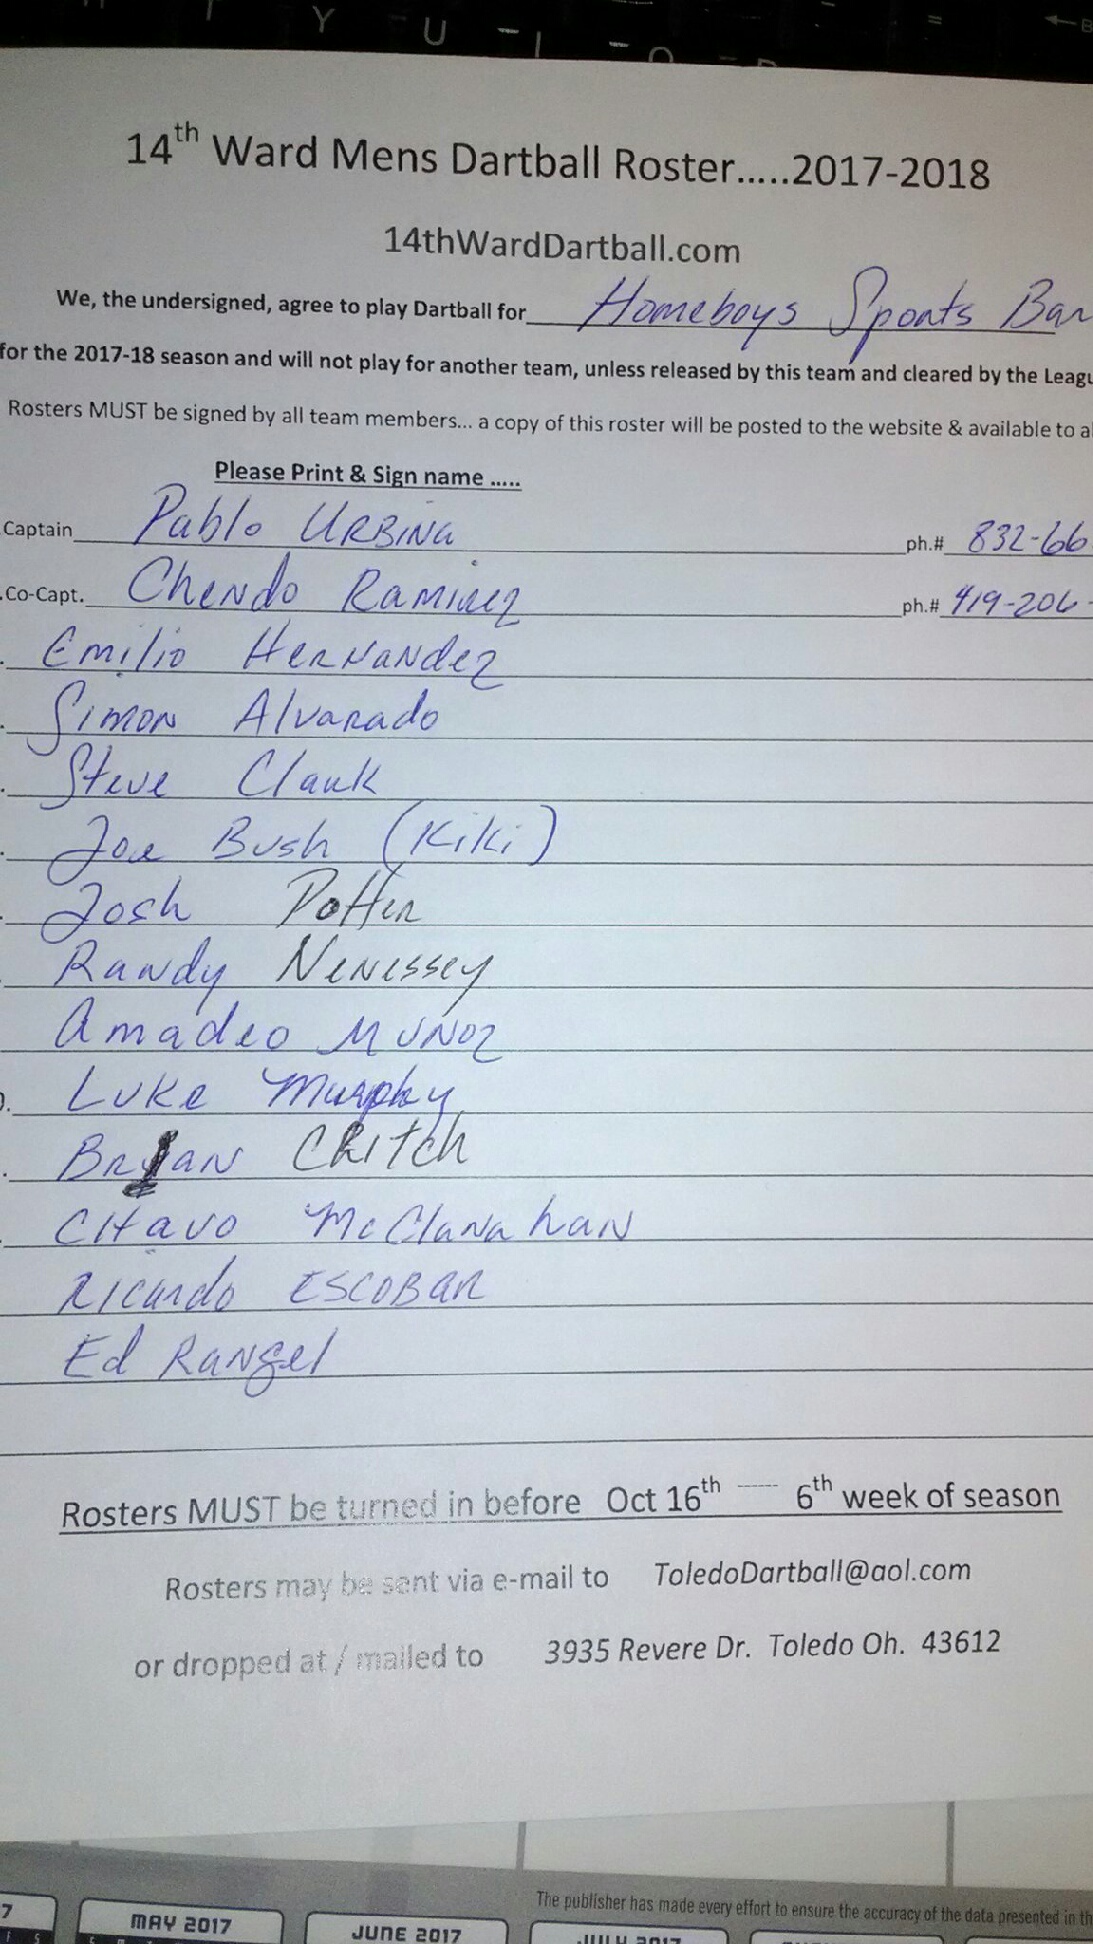 Y U I O P =
14th Ward Mens Dartball Roster.....2017-2018
14thWardDartball.com
We, the undersigned, agree to play Dartball for Homeboys Sports Bar
for the 2017-18 season and will not play for another team, unless released by this team and cleared by the Leagu
Rosters MUST be signed by all team members... a copy of this roster will be posted to the website & available to al
Please Print & Sign name .....
Captain Pablo URBINa ph.# 832-66
.Co-Capt. Chendo Ramirez ph.# 419-206-
Emilio Hernandez
Simon Alvarado
Steve Clark
Joe Bush (Kiki)
Josh Potter
Randy Nenessey
Amadeo Munoz
Luke Murphy
Bryan CRitch
CHavo McClanahan
Ricardo ESCOBAR
Ed Rangel
Rosters MUST be turned in before Oct 16th ---- 6th week of season
Rosters may be sent via e-mail to ToledoDartball@aol.com
or dropped at / mailed to 3935 Revere Dr. Toledo Oh. 43612
The publisher has made every effort to ensure the accuracy of the data presented in th
7 MAY 2017 JUNE 2017 JULY 2017